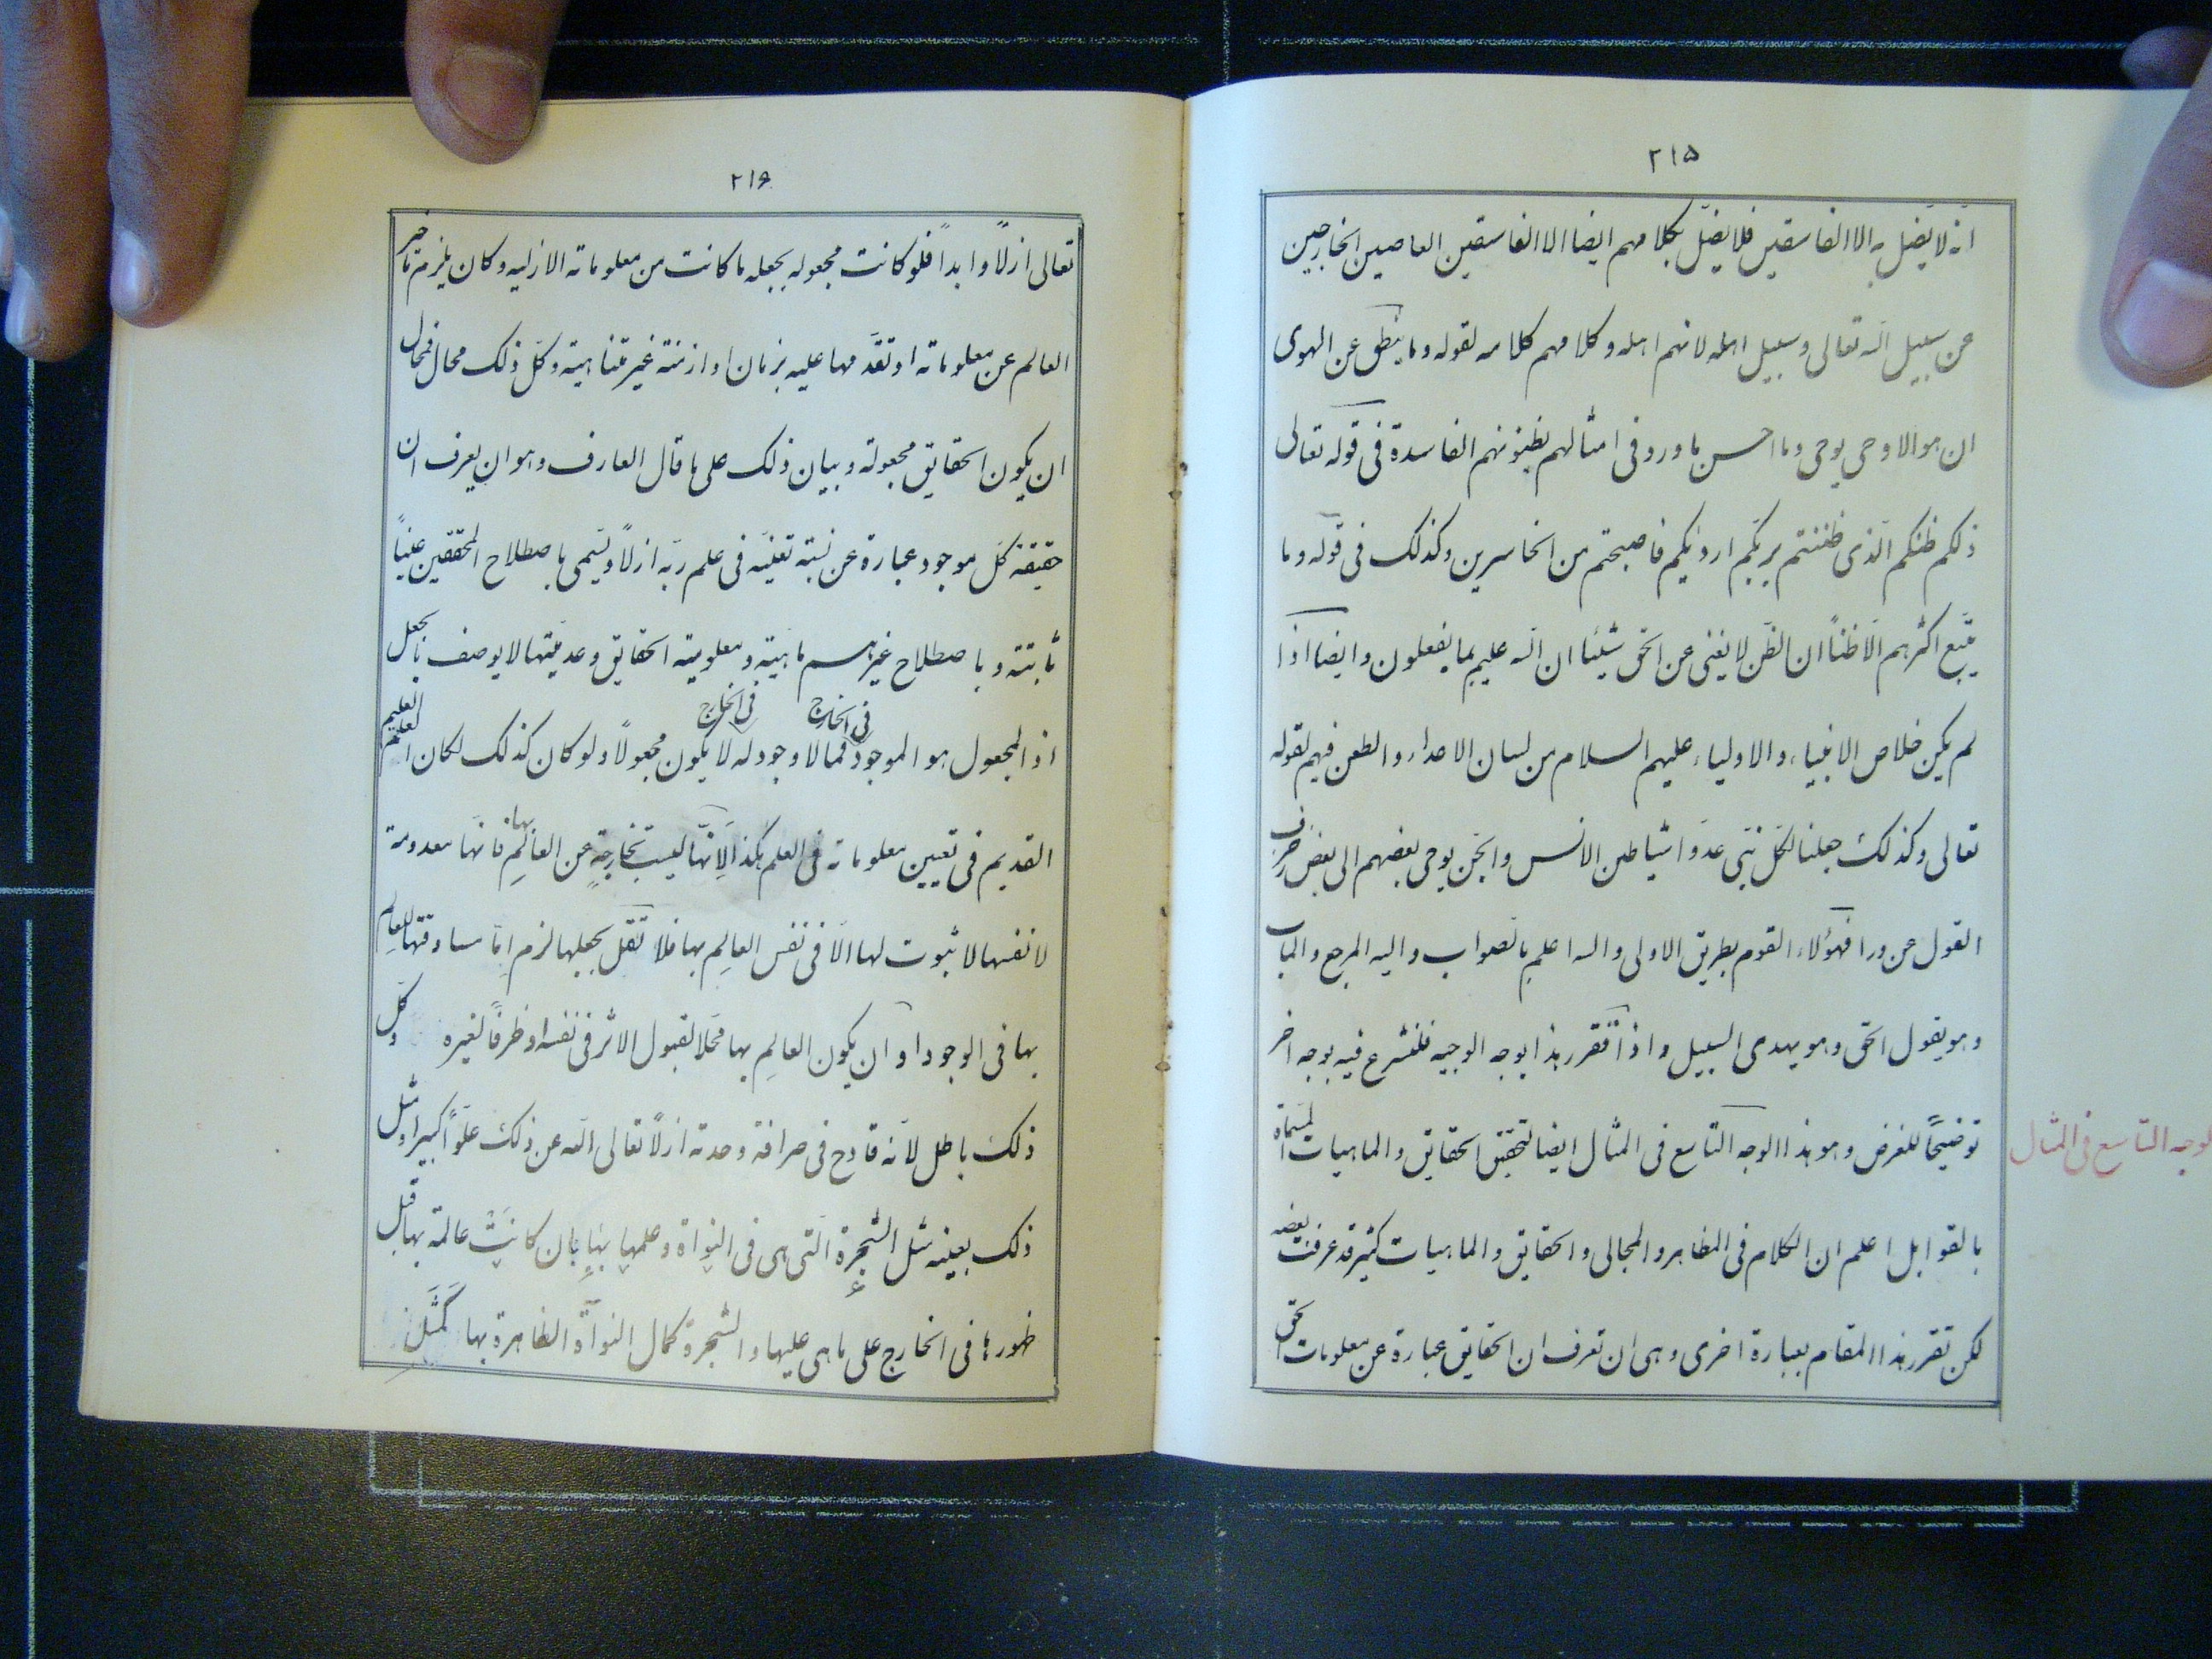 ۲۱۵
انّه لا يضّل به الا الفاسقين فلا يضلّ بكلامهم ايضا الا الفاسقين العاصين الخارجين
عن سبيل الله تعالى وسبيل اهله لانهم اهله وكلامهم كلامه لقوله وما ينطق عن الهوى
ان هو الا وحى يوحى وما احسن ما ورد فى امثالهم بظنونهم الفاسدة فى قوله تعالى
ذلكم ظنكم الّذى ظننتم بربّكم ارديكم فاصبحتم من الخاسرين وكذلك فى قوله وما
يتّبع اكثرهم الّا ظنّاً ان الظّن لا يغنى عن الحق شيئا ان الله عليم بما يفعلون وايضا اذا
لم يكن خلاص الانبياء والاولياء عليهم السلام من لسان الاعداء والطعن فيهم لقوله
تعالى وكذلك جعلنا لكلّ نبّى عدوّا شياطين الانس والجن يوحى بعضهم الى بعض زخرف
القول غرورا فهؤلاء القوم بطريق الاولى والله اعلم بالصواب واليه المرجع والماب
وهو يقول الحق وهو يهدى السبيل واذا تقرر هذا بوجه الوجيه فلنشرع فيه بوجه اخر
توضيحًا للغرض وهو هذا الوجه التاسع فى المثال ايضا لتحقيق الحقايق والماهيات المسماة
الوجه التاسع فى المثال
بالقوابل اعلم ان الكلام فى المظاهر والمجالى والحقايق والماهيات كثير قد عرفت بعضه
لكن تقرر هذا المقام بعبارة اخرى وهى ان تعرف ان الحقايق عبارة عن معلومات الحق
۲۱۶
تعالى ازلاً وابداً فلو كانت مجعوله بجعله ما كانت من معلوماته الازليه وكان يلزم تأخر
العالم عن معلوماته او تقدّمها عليه بزمان او ازمنة غير متناهية وكل ذلك محال فمحال
ان يكون الحقايق مجعولة وبيان ذلك على ما قال العارف وهو ان يعرف ان
حقيقة كلّ موجود عبارة عن نسبة تعيّنه فى علم ربّه ازلاً ويسّمى باصطلاح المحققين عيناً
ثابتة وباصطلاح غيرهم ماهيّة ومعلومية الحقايق وعدميّتها لا يوصف بالجعل
اذ المجعول هو الموجود فى الخارج فما لا وجود له فى الخارج لا يكون مجعولاً ولو كان كذلك لكان العلم
القديم فى تعيين معلوماته فى العلم هكذا الّا انّها ليست بخارجةٍ عن العالِم بها فانّها معدومة
لانفسها لا ثبوت لها الّا فى نفس العالِم بها فلا تقل بجعلها لزم امّا مساوقتها للعالِم
بها فى الوجود او ان يكون العالِم بها محلّا لقبول الاثر فى نفسه او ظرفًا لغيره وكلّ
ذلك باطل لانّه قادح فى صرافة وحدته ازلاً تعالى الله عن ذلك علوّاً كبيرا ومثل
ذلك بعينه مثل الشجرة التى هى فى النواة وعلمها بها بان كانت عالمة بها قبل
ظهورها فى الخارج على ما هى عليها والشجرة كمال النواة الظاهرة بها كمثل